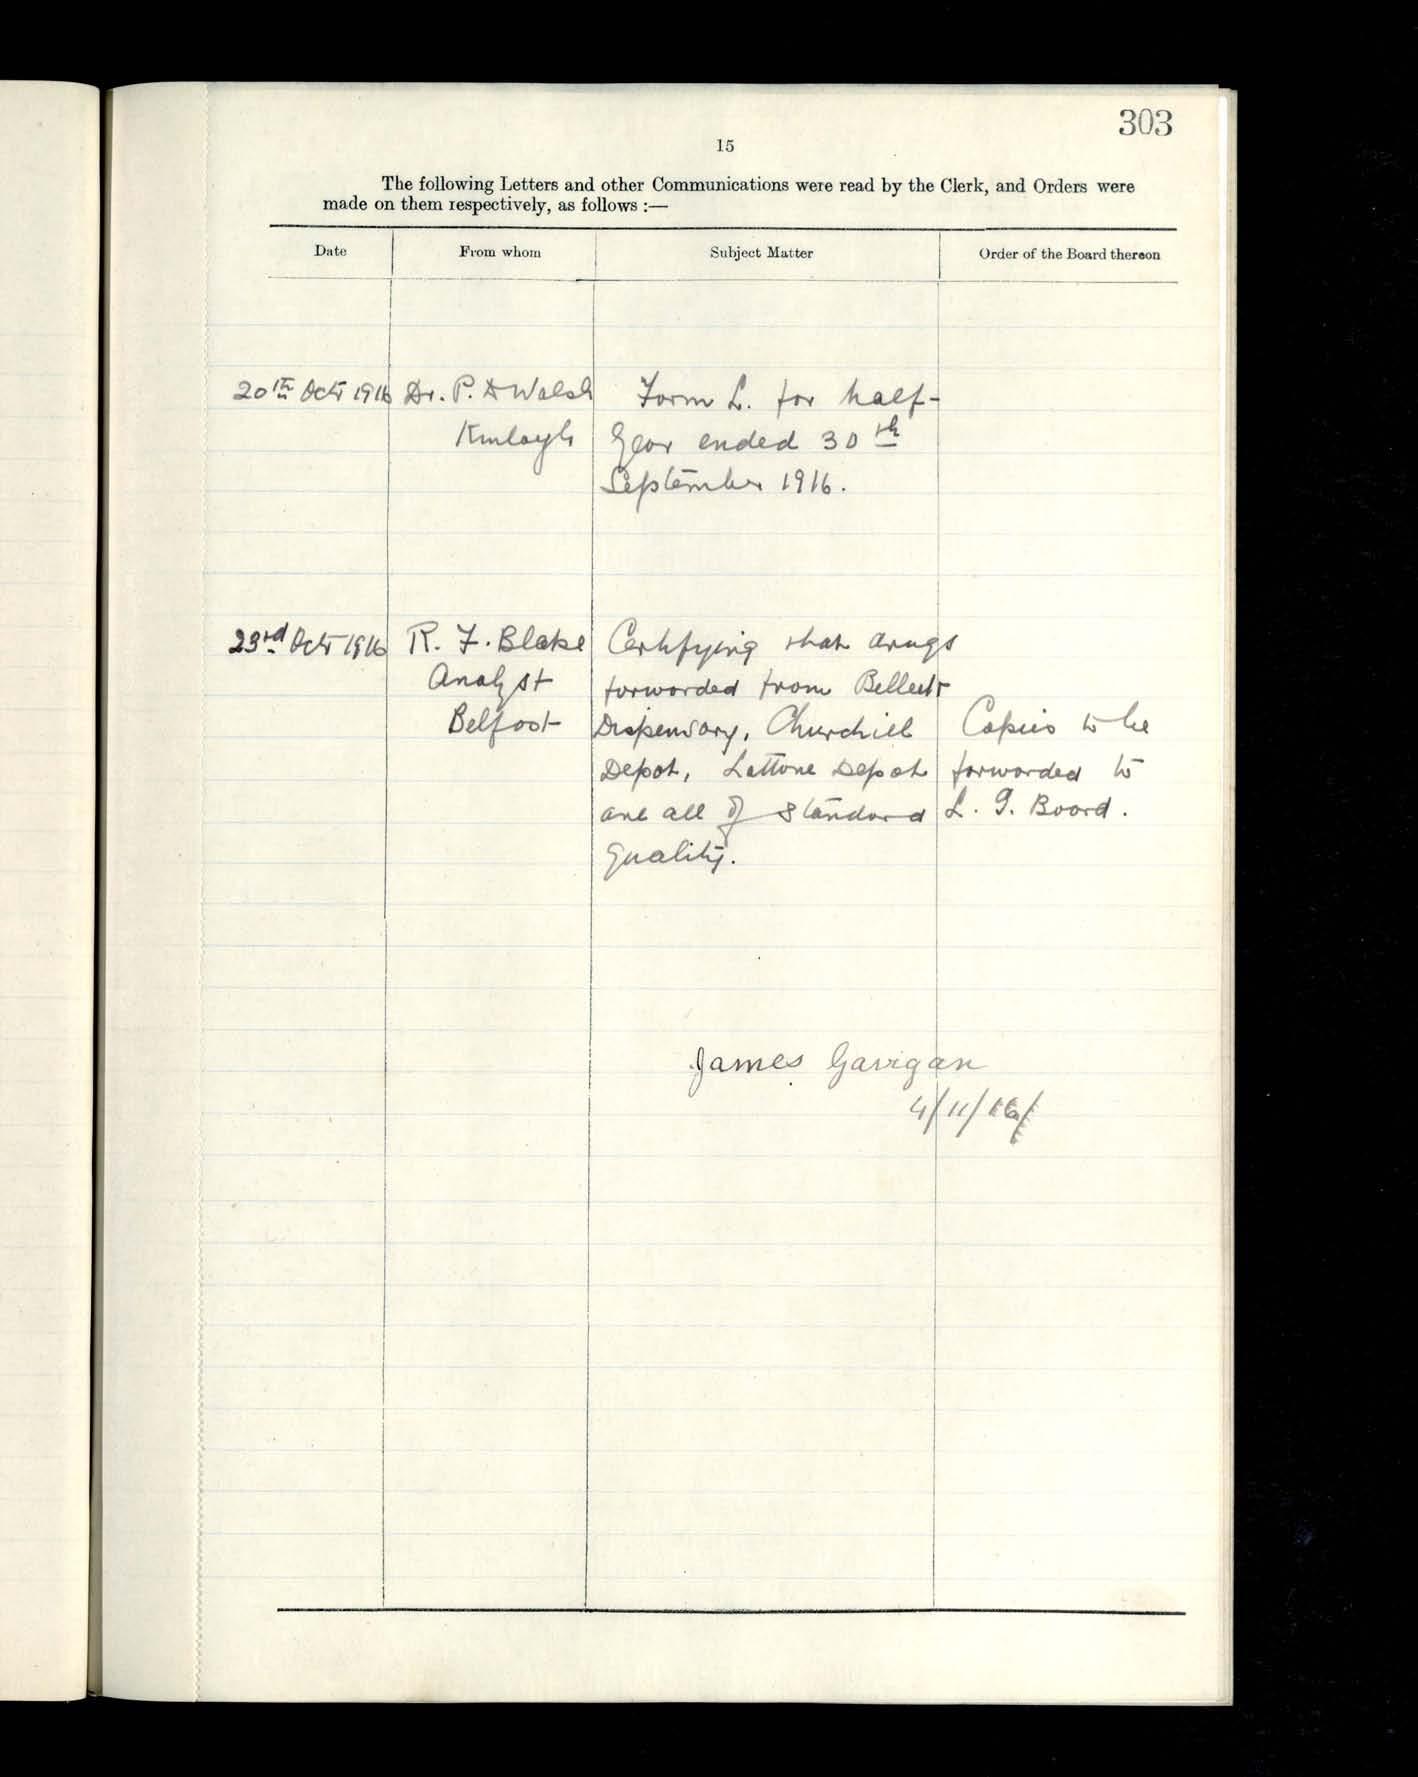 303
15
The following Letters and other Communications were read by the Clerk, and Orders were
made on them respectively, as follows :—
Date From whom Subject Matter Order of the Board thereon
20th Octr 1916 Dr. P. D Walsh Form L. for half-
Kinlough year ended 30th
September 1916.
23rd Octr 1916 R. F. Blake Certifying that drugs
Analyst forwarded from Belleek
Belfast Dispensary, Churchill Copies to be
Depot, Lattone Depot forwarded to
are all of standard L. G. Board.
quality.
James Gavigan
4/11/16/